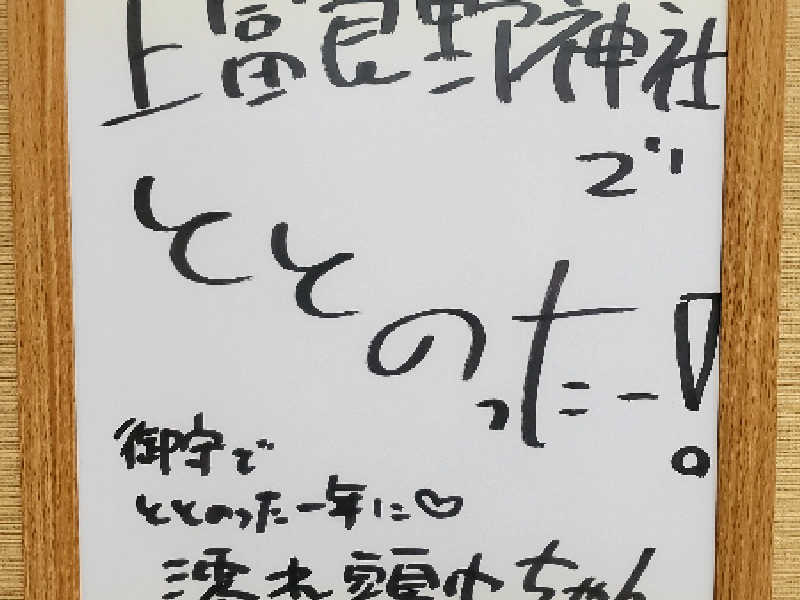 上富良野神社
で
ととのったー!
御守で
ととのった一年に♡
濡れ頭巾ちゃん